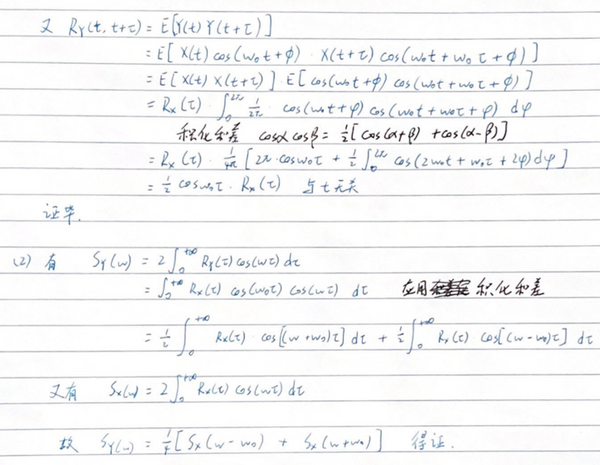 又 R_Y(t, t+τ) = E[Y(t) Y(t+τ)]
= E[ X(t) cos(w₀t+ϕ) · X(t+τ) cos(w₀t + w₀τ + ϕ) ]
= E[X(t) X(t+τ)] E[cos(w₀t+ϕ) cos(w₀t+w₀τ+ϕ)]
= R_X(τ) · ∫₀^{2π} 1/2π · cos(w₀t+φ) cos(w₀t+w₀τ+φ) dφ
积化和差 cosα cosβ = 1/2 [cos(α+β) + cos(α-β)]
= R_X(τ) · 1/4π [2π · cosw₀τ + 1/2 ∫₀^{2π} cos(2w₀t + w₀τ + 2φ) dφ]
= 1/2 cosw₀τ · R_X(τ) 与t无关
证毕.
(2) 有 S_Y(w) = 2∫₀^{+∞} R_Y(τ) cos(wτ) dτ
= ∫₀^{+∞} R_X(τ) cos(w₀τ) cos(wτ) dτ 应用 积化和差
= 1/2 ∫₀^{+∞} R_X(τ) · cos[(w+w₀)τ] dτ + 1/2 ∫₀^{+∞} R_X(τ) cos[(w-w₀)τ] dτ
又有 S_X(w) = 2∫₀^{+∞} R_X(τ) cos(wτ) dτ
故 S_Y(w) = 1/4 [S_X(w-w₀) + S_X(w+w₀)] 得证.